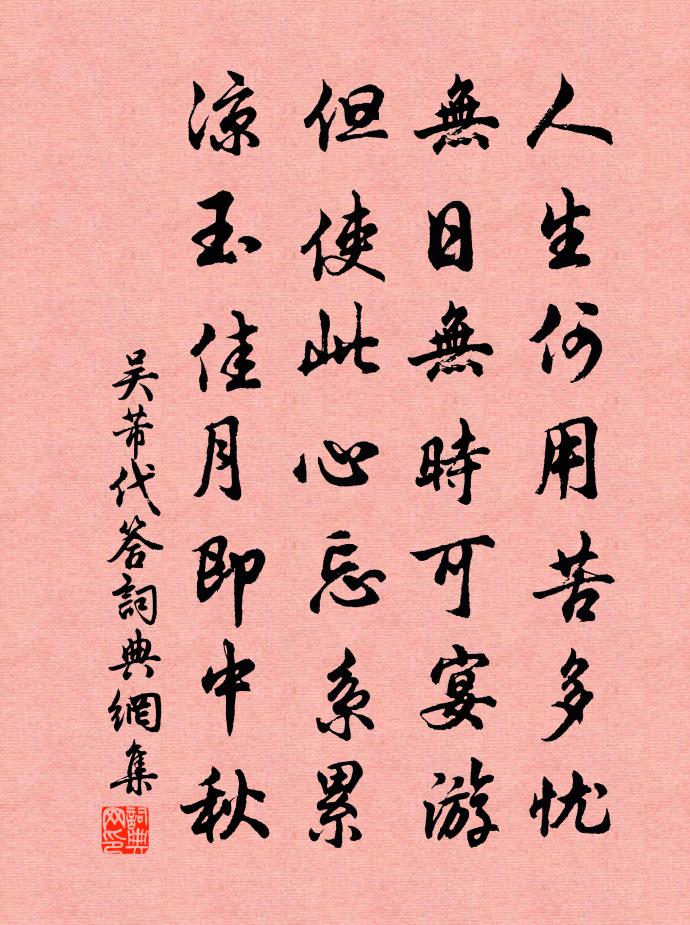 人生何用苦多忧
無日無時可宴游
但使此心忘系累
凉玉佳月即中秋
吴芾代答詞典網集
詞典网印